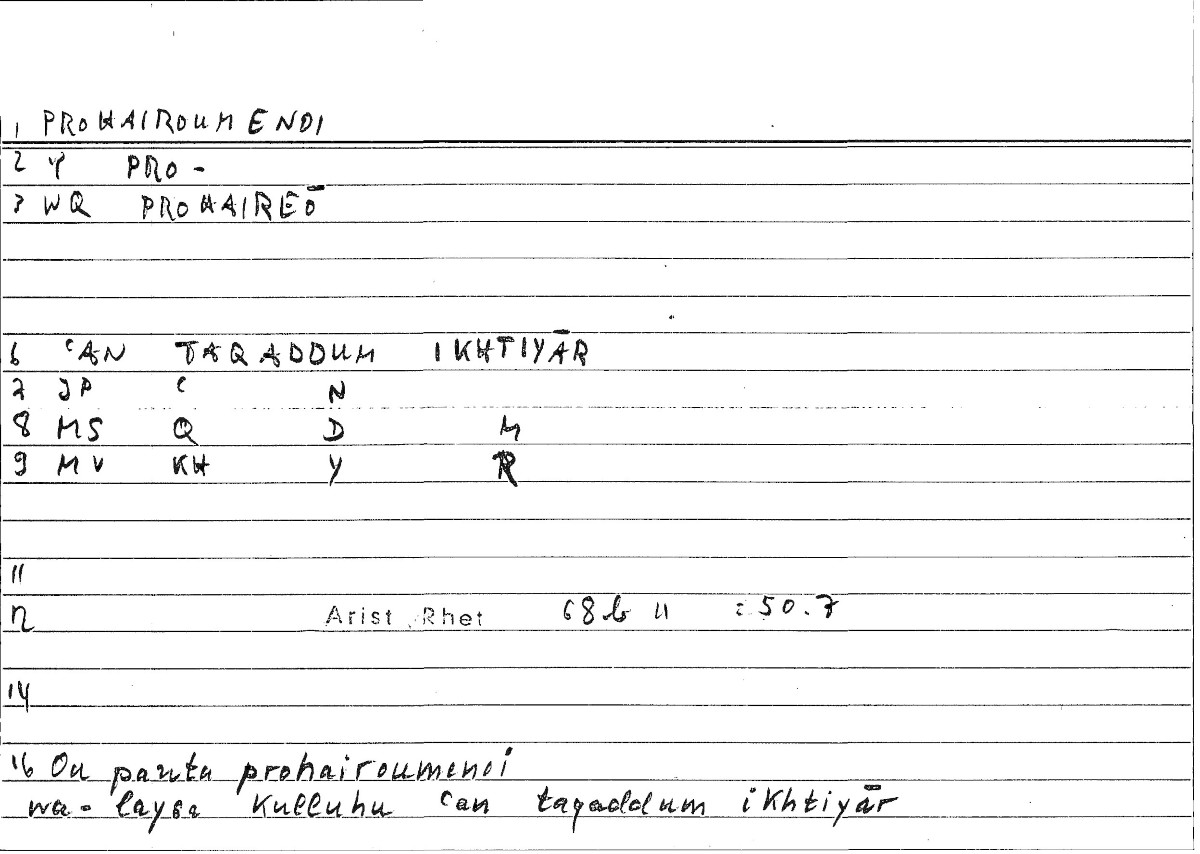 1 PROHAIROUMENOI
2 Y PRO-
3 WQ PROHAIREŌ
6 ʿAN TAQADDUM IKHTIYĀR
7 JP ʿ N
8 MS Q D M
9 MV KH Y R
11
12 Arist Rhet 68b 11 : 50.7
14
16 Ou panta prohairoumenoi
wa-laysa kulluhu ʿan taqaddum ikhtiyār